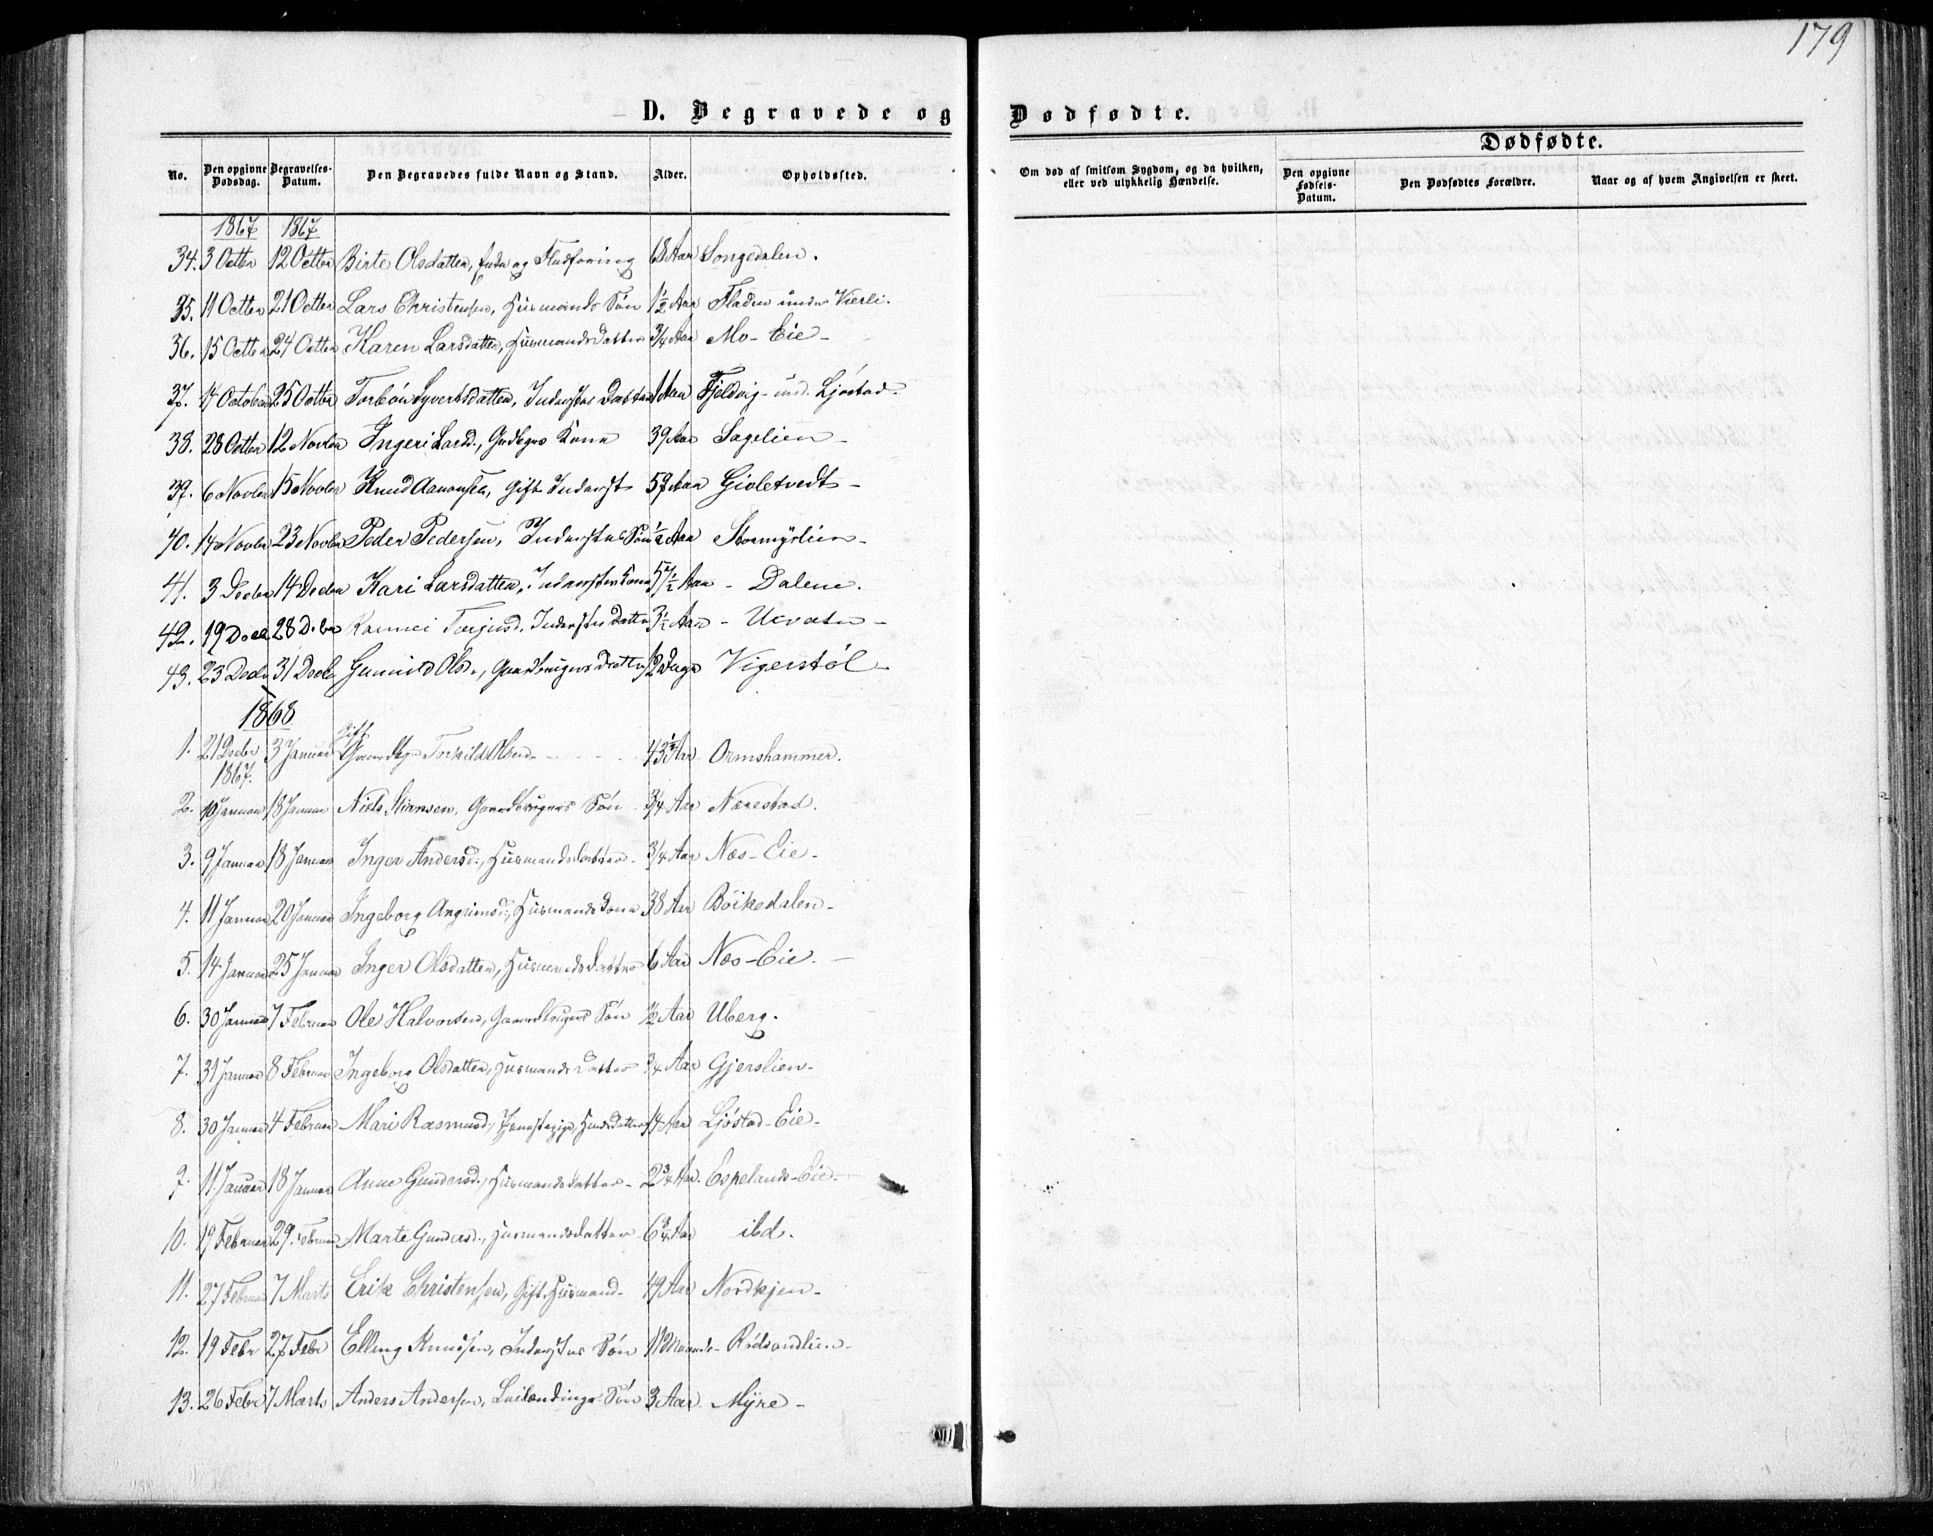 179
D. Begravede og Dødfødte.
No. Den opgivne Dødsdag. Begravelses-Datum. Den Begravedes fulde Navn og Stand. Alder. Opholdssted. Om død af smitsom Sygdom, og da hvilken, eller ved ulykkelig Hændelse. Dødfødte. Den opgivne Fødsels-Datum. Den Dødfødtes Forældre. Naar og af hvem Angivelsen er skeet.
1867 1867
34. 3 Octbr 12 Octbr Birte Olsdatter, og 68 Aar Songedalen.
35. 11 Octbr 21 Octbr Lars Christensen, Husmands Søn 1½ Aar Fladen under Vierli.
36. 15 Octbr 24 Octbr Karen Larsdatter, Husmands Datter ¾ Aar Mo-Eie-
37. 17 October 25 Octbr Torbør Syvertsdatter, Inderstes Datter 11 Aar Fjeldvig- und. Ljøstad-
38. 28 Octbr 12 Novbr Ingeri Larsd., Grdbrgrs Kone 39 Aar Sagelien-
39. 6 Novbr 15 Novbr Knud Aanonsen, Gift Inderst 59 Aar Givletvedt-
40. 14 Novbr 23 Novbr Peder Pedersen, Inderstes Søn ½ Aar Stormyrlien-
41. 3 Decbr 14 Decbr Kari Larsdatter, Inderstes Kone 57½ Aar - Dalene.
42. 19 Decbr 28 Dcbr Torjusd. Inderstes Datter 3½ Aar - Ucvatn-
43. 23 Decbr 31 Decbr Gunnild Olsd., Gaardbrugers Datter 12 Dage Vigerstøl-
1868
1. 21 Decbr 1867. 3 Januar Gift Gaardbg Torkild Olsen 43½ Aar Ormshammer.
2. 10 Januar 18 Januar Niels Stiansen, Gaardbrugers Søn ¾ Aar Nærestad.
3. 9 Januar 18 Januar Inger Andersd., Husmandsdatter- ¾ Aar Næs-Eie-
4. 11 Januar 20 Januar Ingeborg Angrimsd., Husmands Kone 38 Aar Böikedalen-
5. 14 Januar 25 Januar Inger Olsdatter, Husmandsdatter 6 Aar Næs-Eie.-
6. 30 Januar 7 Februar Ole Halvorsen, Gaardbrugers Søn ½ Aar Uberg.
7. 31 Januar 8 Februar Ingeborg Olsdatter, Husmands Datter ¾ Aar Gjerslien-
8. 30 Januar 4 Februar Mari Rasmusd., Tjenestepige, Husmdatter 14 Aar Ljøstad-Eie-
9. 11. Januar 18 Januar Anne Gundersd., Husmandsdatter- 2¾ Aar. Espelands-Eie-
10. 19 Februar 29. Februar Marte Gundersd., Husmandsdatter 6¾ Aar ibd.
11. 27 Februar 7 Marts Erik Christensen, Gift. Husmand- 49 Aar Nordkjen-
12. 19 Febr 27 Febr Elling Knudsen, Inderstes Søn 11 Maande- Rødsandlien-
13. 26 Febr 7 Marts Anders Andersen, Leilændings Søn 3 Aar Myre-